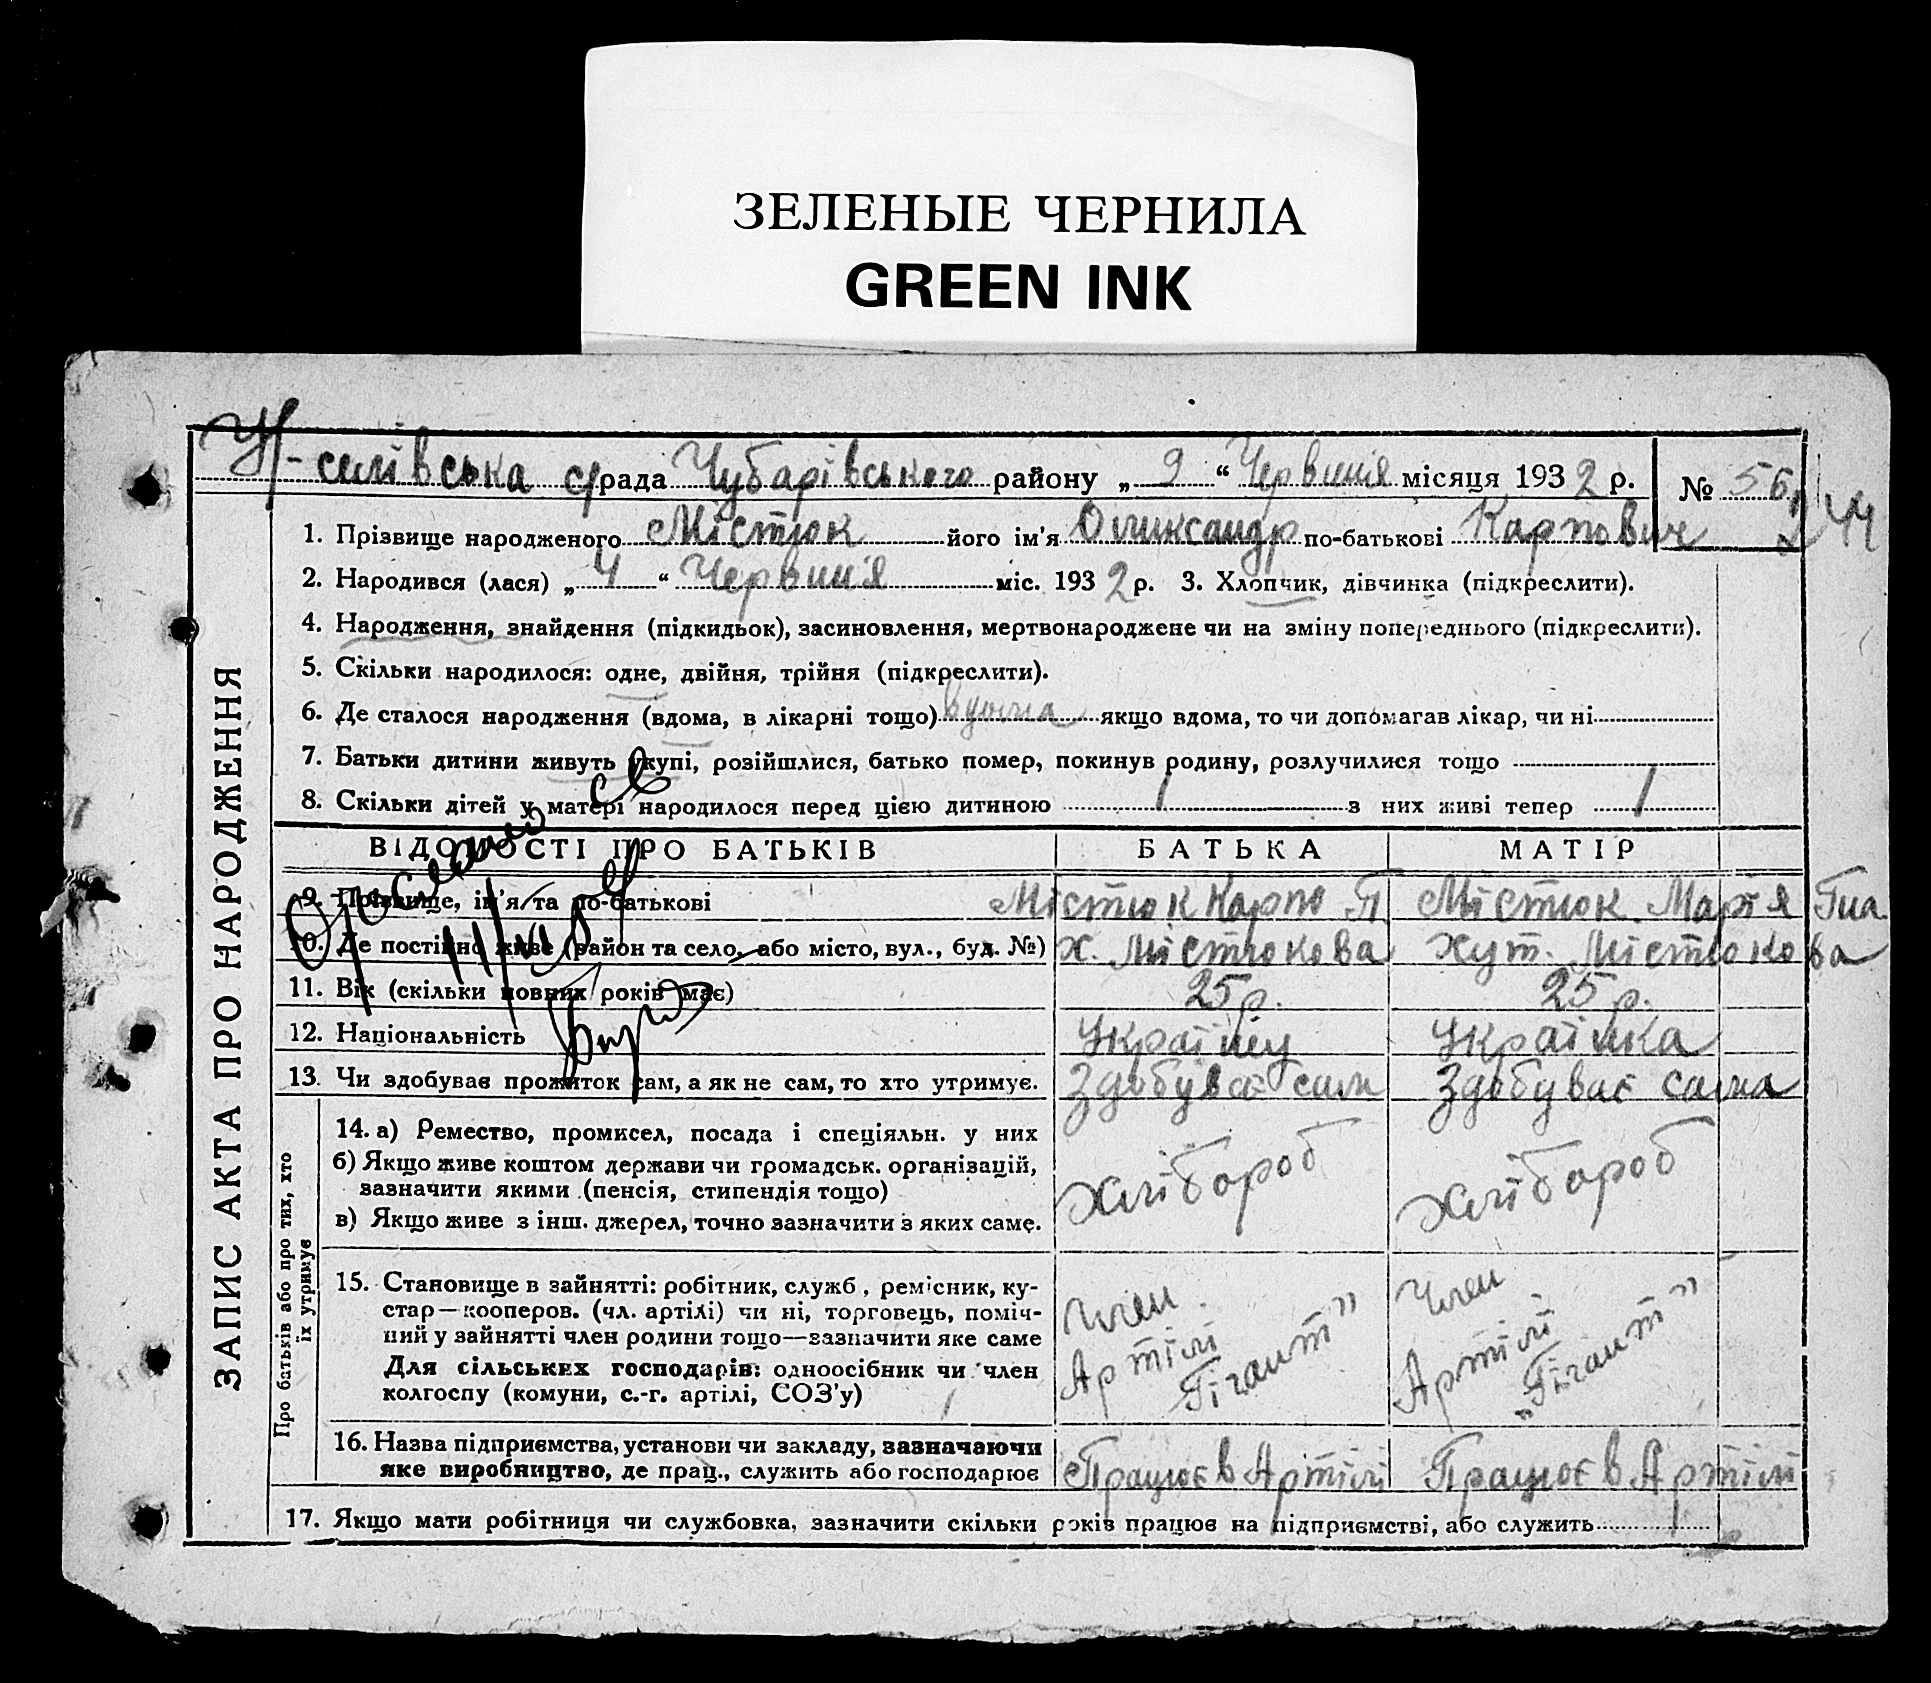 ЗЕЛЕНЫЕ ЧЕРНИЛА
GREEN INK
ЗАПИС АКТА ПРО НАРОДЖЕННЯ
-селівська с/рада Чубарівського району „ 9 “ Червння місяця 1932 р. № 56
244
1. Прізвище народженого Містюк його ім'я Оликсандр по-батькові Карпович
2. Народився (лася) „ 4 “ Червння міс. 1932 р. 3. Хлопчик, дівчинка (підкреслити).
4. Народження, знайдення (підкидьок), засиновлення, мертвонароджене чи на зміну попереднього (підкреслити).
5. Скільки народилося: одне, двійня, трійня (підкреслити).
6. Де сталося народження (вдома, в лікарні тощо) вдома якщо вдома, то чи допомагав лікар, чи ні
7. Батьки дитини живуть укупі, розійшлися, батько помер, покинув родину, розлучилися тощо
8. Скільки дітей у матері народилося перед цією дитиною 1 з них живі тепер 1
ВІДОМОСТІ ПРО БАТЬКІВ БАТЬКА МАТІР
9. Прізвище, ім'я та по-батькові Містюк Карпо П. Містюк Марія Гна.
10. Де постійно живе (район та село, або місто, вул., буд. №) х. Містюкова хут. Містюкова
11. Вік (скільки повних років має) 25 р. 25 р.
12. Національність Українц Українка
13. Чи здобував прожиток сам, а як не сам, то хто утримує. Здобуває сам Здобуває сама
Про батьків або про тих, хто
їх утримує
14. а) Ремество, промисел, посада і спеціяльн. у них
б) Якщо живе коштом держави чи громадськ. організацій,
зазначити якими (пенсія, стипендія тощо)
в) Якщо живе з інш. джерел, точно зазначити з яких саме.
Хлібороб Хлібороб
15. Становище в зайнятті: робітник, служб, ремісник, ку-
стар—кооперов. (чл. артілі) чи ні, торговець, поміч-
ний у зайнятті член родини тощо—зазначити яке саме
Для сільських господарів: одноосібник чи член
колгоспу (комуни, с.-г. артілі, СОЗ'у)
Член Артілі Гігант” Член Артілі „Гігант”
16. Назва підприємства, установи чи закладу, зазначаючи
яке виробництво, де прац., служить або господарює
Працює в Артілі Працює в Артілі
17. Якщо мати робітниця чи службовка, зазначити скільки років працює на підприємстві, або служить